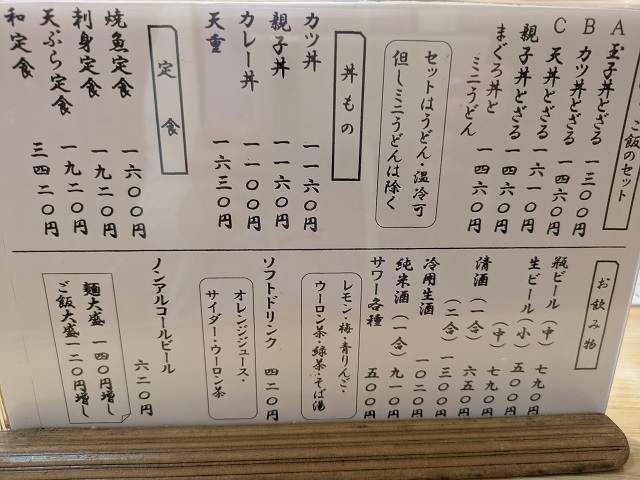 ご飯のセット
A 玉子丼とざる 一三〇〇円
B カツ丼とざる 一四六〇円
C 天丼とざる 一六一〇円
親子丼とざる 一四六〇円
まぐろ丼と
ミニうどん 一四六〇円
セットはうどん・温冷可
但しミニうどんは除く
丼もの
カツ丼 一一六〇円
親子丼 一一六〇円
カレー丼 一一〇〇円
天重 一六三〇円
定食
焼魚定食 一六〇〇円
刺身定食 一九二〇円
天ぷら定食 一九二〇円
和定食 三四二〇円
お飲み物
瓶ビール(中) 七九〇円
生ビール(小) 五〇〇円
(中) 七九〇円
清酒(一合) 六五〇円
(二合) 一三〇〇円
冷用生酒 一〇二〇円
純米酒(一合) 九一〇円
サワー各種 五〇〇円
レモン・梅・青りんご・
ウーロン茶・緑茶・そば湯
ソフトドリンク 四二〇円
オレンジジュース・
サイダー・ウーロン茶
ノンアルコールビール 六二〇円
麺大盛 一四〇円増し
ご飯大盛 二〇円増し